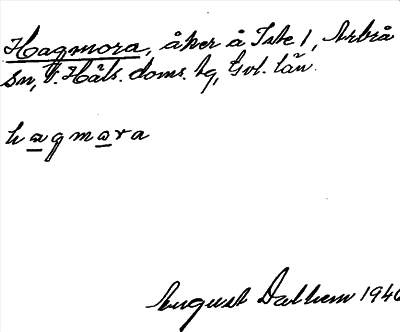 Hagmora, åker å Iste 1, Arbrå
Sn, V. Häls. doms. tg, Gvl. län.
hagmora
August Dalhem 1940